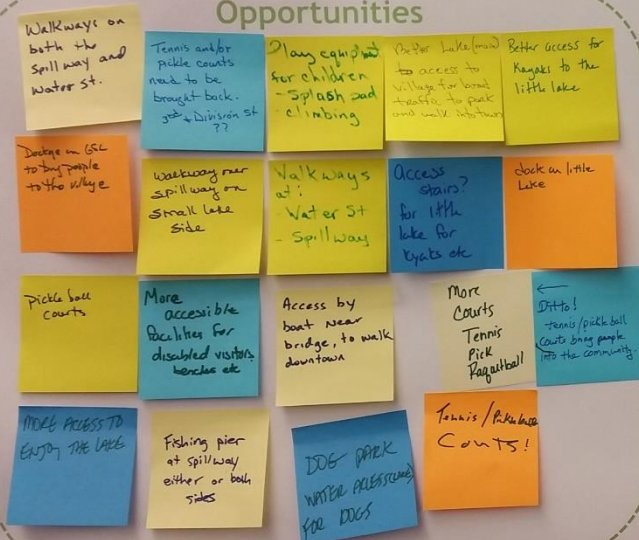 Opportunities
Walkways on
both the
spillway and
Water St.
Tennis and/or
pickle courts
need to be
brought back.
3rd + Division St
??
Play equipment
for children
- Splash pad
- climbing
Better Lake
to access to
village for boat
traffic to park
and walk into town
Better access for
Kayaks to the
little lake
Dockage on GSL
to bring people
to the village
walkway over
spillway on
small lake
side
Walkways
at:
- Water St
- Spillway
Access
stairs?
for little
lake for
kyaks etc
dock on little
Lake
Pickle ball
courts
More
accessible
facilities for
disabled visitors,
benches etc
Access by
boat near
bridge, to walk
downtown
More
Courts
Tennis
Pick
Raquetball
←
Ditto!
tennis/pickleball
courts bring people
into the community.
MORE ACCESS TO
ENJOY THE LAKE
Fishing pier
at spillway
either or both
sides
DOG PARK
WATER ACCESS
FOR DOGS
Tennis/Pickleball
Courts!